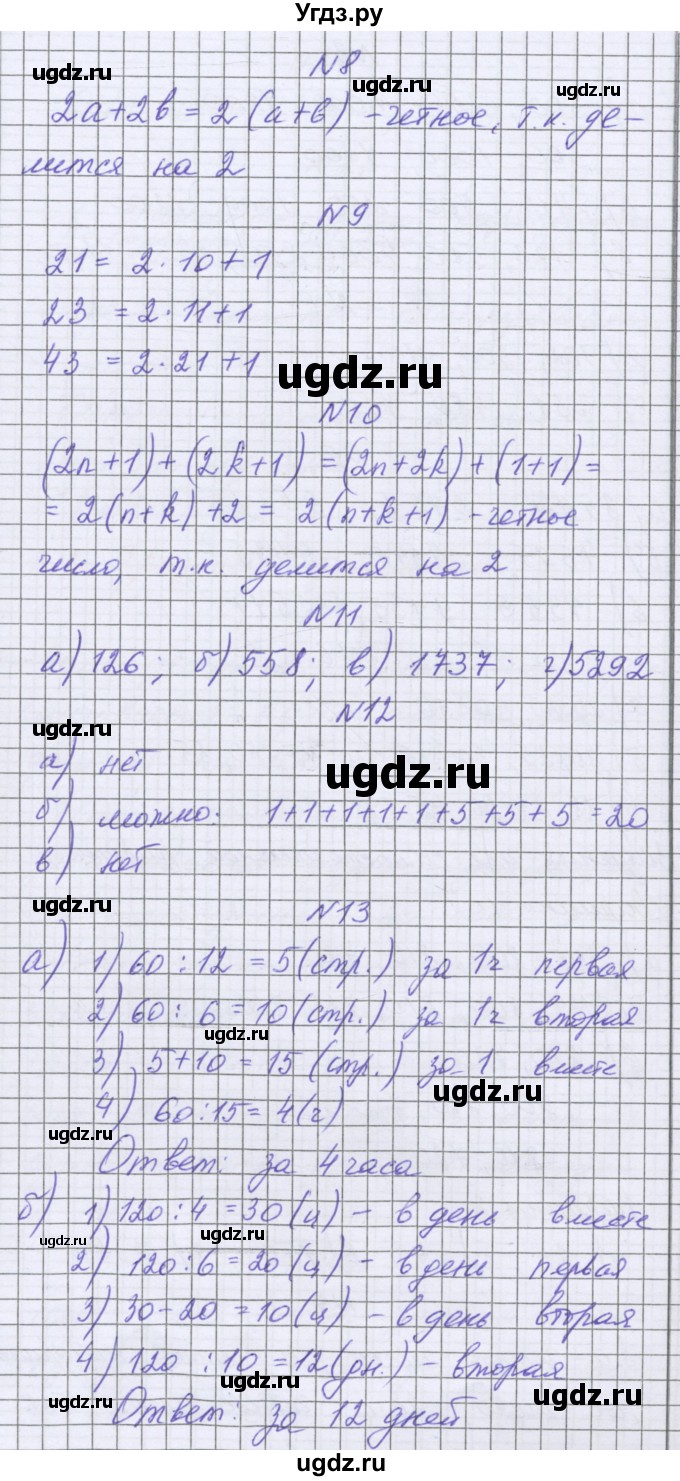 Угдз.ру
N8
ugdz.ru ugdz.ru ugdz.ru
2a+2b = 2 (a+b) - четное, т.к. де-
лится на 2
N9
21 = 2·10+1
23 = 2·11+1
43 = 2·21+1
ugdz.ru
N10
(2n+1)+(2k+1) = (2n+2k)+(1+1) =
= 2(n+k)+2 = 2(n+k+1) - четное
число, т.к. делится на 2
N11
а) 126; б) 558; в) 1737; г) 5292
N12
ugdz.ru
а) нет
ugdz.ru
б) можно: 1+1+1+1+1+5+5+5=20
в) нет
ugdz.ru
N13
а) 1) 60:12 = 5(стр.) за 1ч первая
2) 60:6 = 10(стр.) за 1ч вторая
ugdz.ru
3) 5+10 = 15 (стр.) за 1 вместе
ugdz.ru
4) 60:15 = 4(ч)
ugdz.ru
Ответ: за 4 часа
б) 1) 120:4 = 30(ц) - в день вместе
ugdz.ru ugdz.ru
2) 120:6 = 20(ц) - в день первая
3) 30-20 = 10(ц) - в день вторая
4) 120:10 = 12(дн.) - вторая
ugdz.ru ugdz.ru
ugdz.ru
Ответ: за 12 дней
ugdz.ru